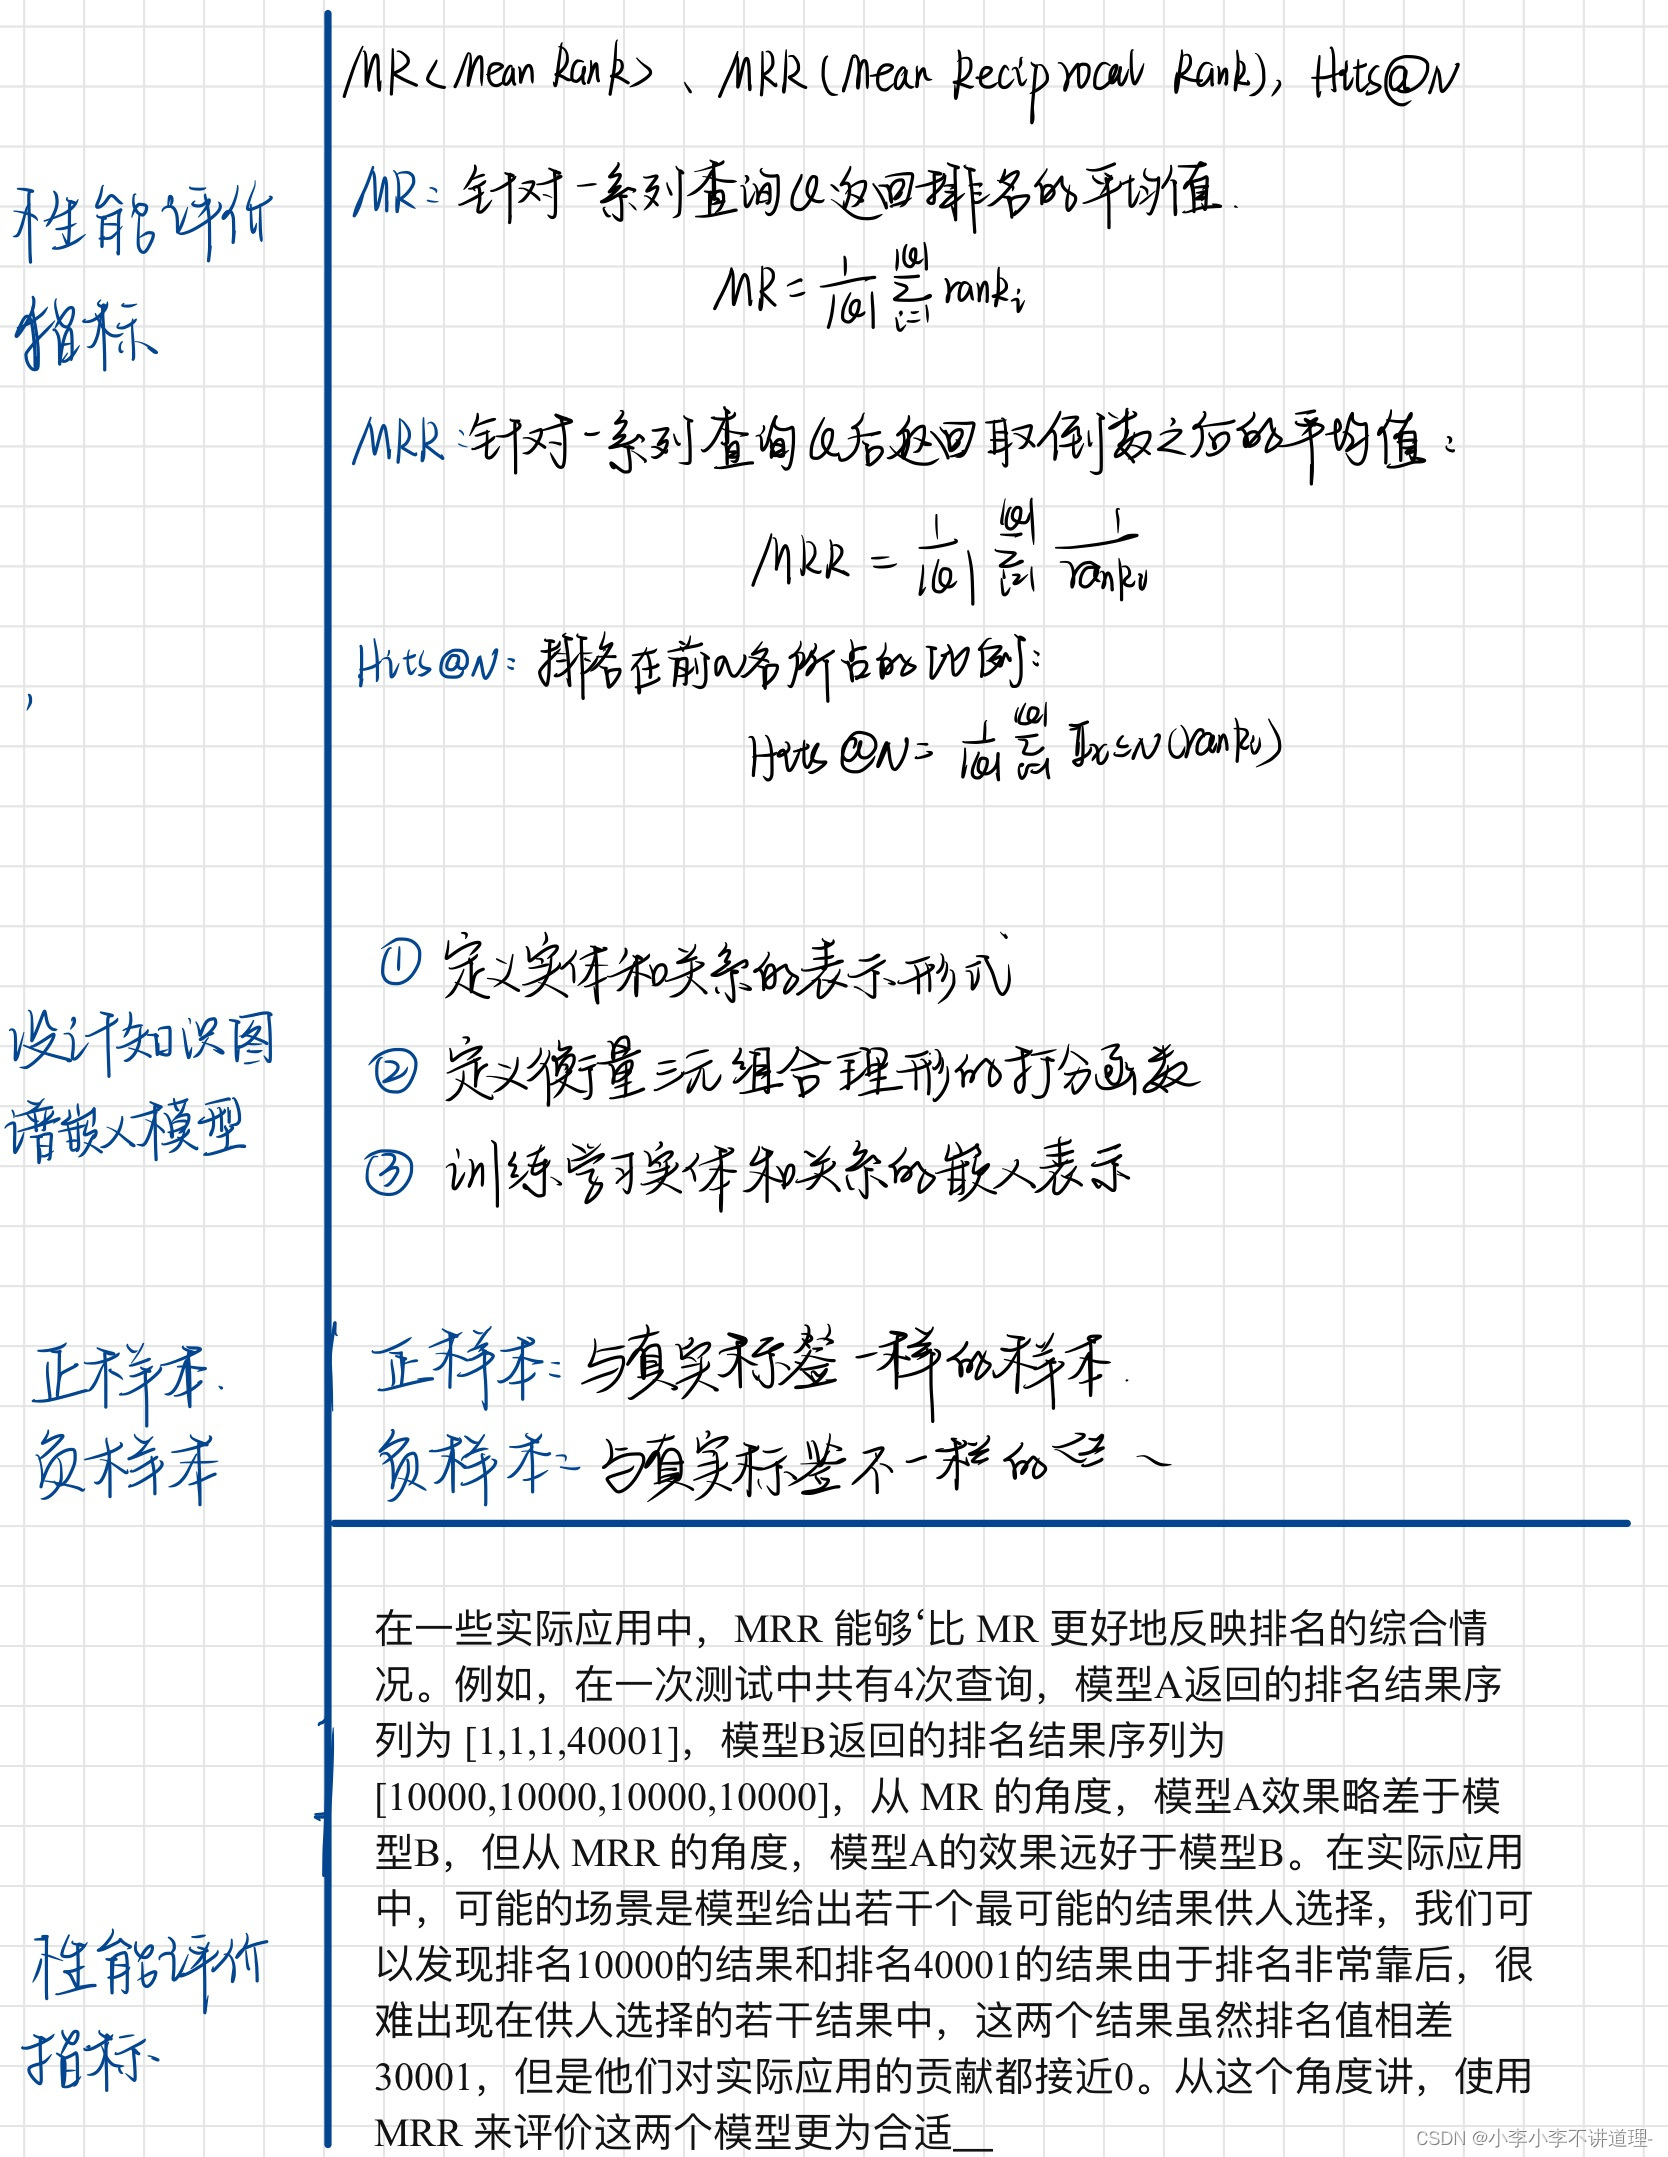 MR<Mean Rank>、MRR(Mean Reciprocal Rank), Hits@N
性能评价
指标
MR: 针对一系列查询Q返回排名的平均值.
MR = 1/|Q| ∑_{i=1}^{|Q|} rank_i
MRR: 针对一系列查询Q后返回取倒数之后的平均值:
MRR = 1/|Q| ∑_{i=1}^{|Q|} 1/rank_i
Hits@N: 排名在前n名所占的比例:
Hits@N = 1/|Q| ∑_{i=1}^{|Q|} 𝕀_{x≤N}(rank_i)
设计知识图
谱嵌入模型
① 定义实体和关系的表示形式
② 定义衡量三元组合理形的打分函数
③ 训练学习实体和关系的嵌入表示
正样本.
负样本
正样本: 与真实标签一样的样本.
负样本: 与真实标签不一样的
性能评价
指标
在一些实际应用中，MRR 能够‘比 MR 更好地反映排名的综合情
况。例如，在一次测试中共有4次查询，模型A返回的排名结果序
列为 [1,1,1,40001]，模型B返回的排名结果序列为
[10000,10000,10000,10000]，从 MR 的角度，模型A效果略差于模
型B，但从 MRR 的角度，模型A的效果远好于模型B。在实际应用
中，可能的场景是模型给出若干个最可能的结果供人选择，我们可
以发现排名10000的结果和排名40001的结果由于排名非常靠后，很
难出现在供人选择的若干结果中，这两个结果虽然排名值相差
30001，但是他们对实际应用的贡献都接近0。从这个角度讲，使用
MRR 来评价这两个模型更为合适__
CSDN @小李小李不讲道理-